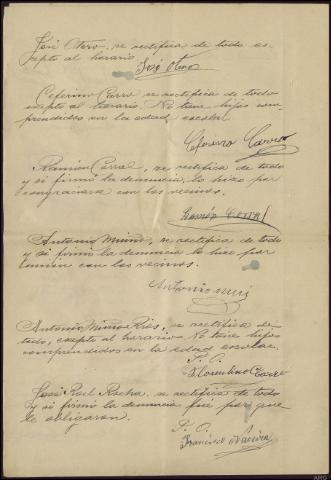 José Otero, se rectifica de todo es-
cepto al horario.
José Otero
Ceferino Carro se rectifica de todo
esepto al horario. No tiene hijos com-
prendidos en la edad escolar
Ceferino Carro
Ramón Corral, se rectifica de todo
y si firmó la denuncia lo hizo por
congraciarse con los vecinos.
Ramón Corral
Antonio Muiño, se rectifica de todo
y si firmó la denuncia lo hizo por
con los vecinos.
Antonio
Antonio Ríos, se rectifica de
todo, esepto al horario. No tiene hijos
comprendidos en la edad escolar.
P. O.
Florentino
José Rocha se rectifica de todo
y si firmó la denuncia fué por que
le obligaron.
P. O.
Francisco